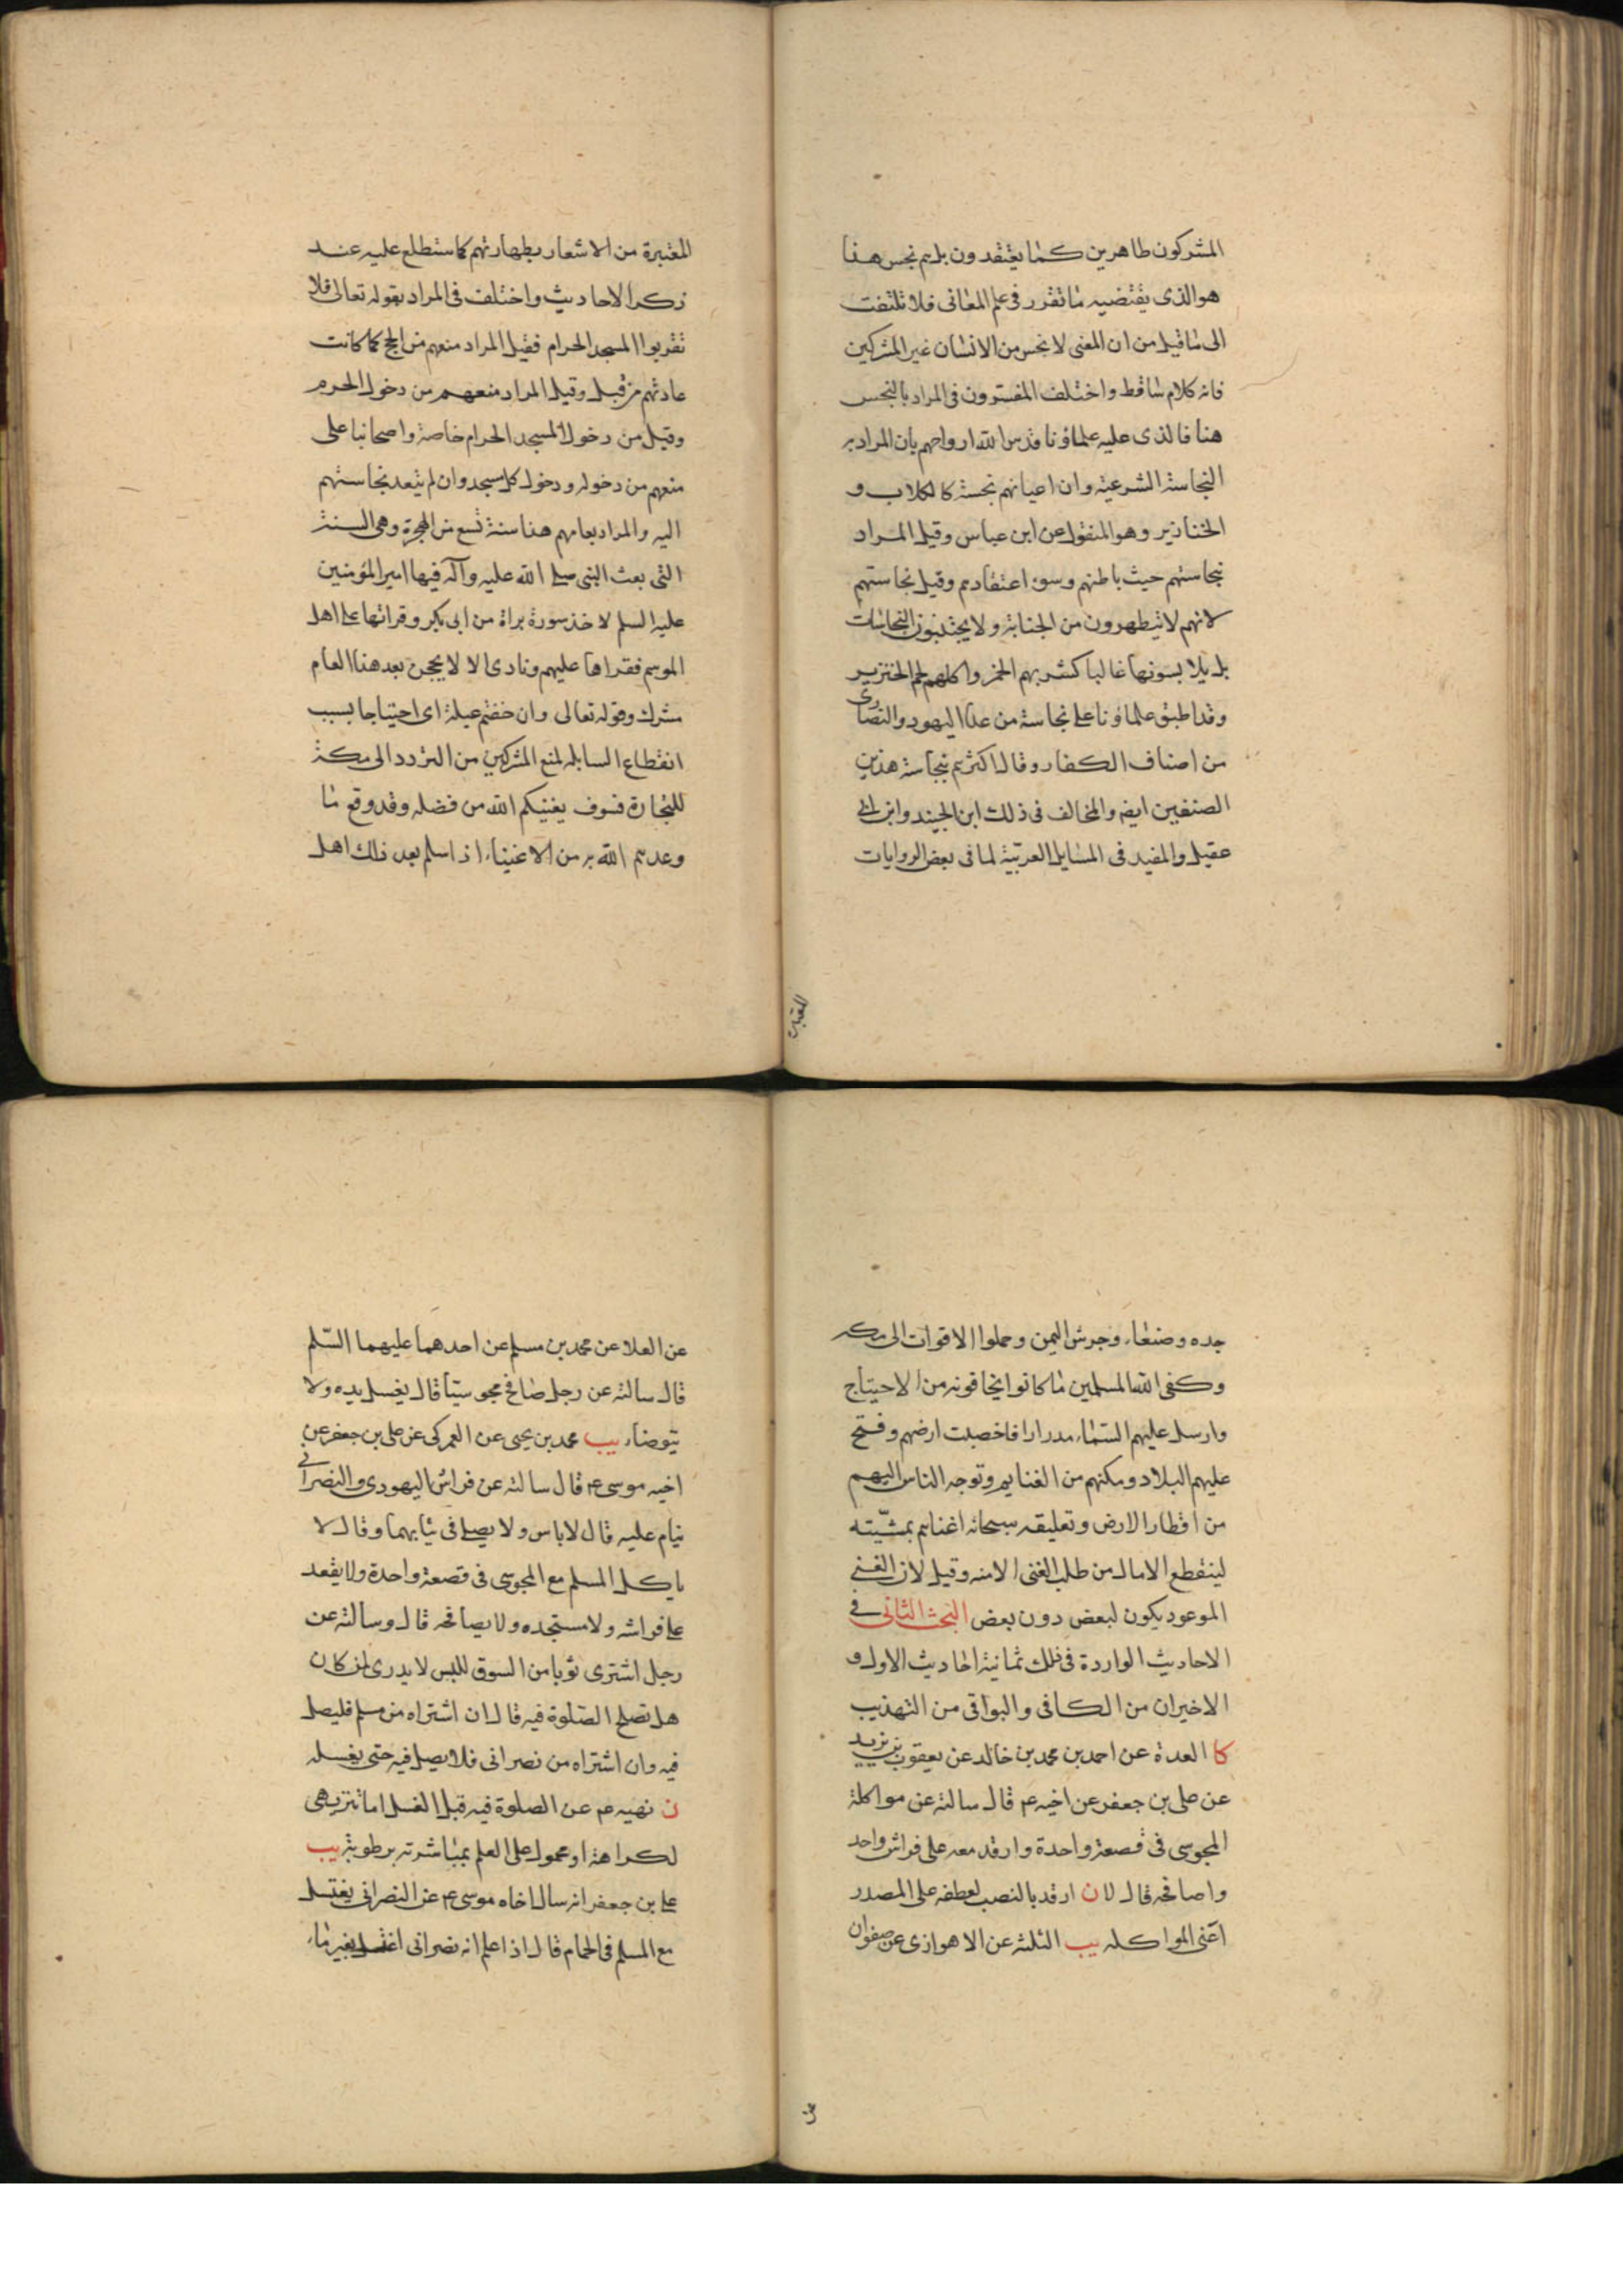 المشركون طاهرين كما يعتقدون بل هم نجس هذا
هو الذى يقتضيه ما تقرر فى علم المعانى فلا تلتفت
الى ما قيل من ان المعنى لا نجس من الانسان غير المشركين
فانه كلام ساقط واختلف المفسرون فى المراد بالنجس
هنا فالذى عليه علماؤنا قدس الله ارواحهم بان المراد به
النجاسة الشرعية وان اعيانهم نجسة كالكلاب و
الخنازير وهو المنقول عن ابن عباس وقيل المراد
نجاستهم حيث باطنهم وسوء اعتقادهم وقيل نجاستهم
لانهم لا يتطهرون من الجنابة ولا يجتنبون النجاسات
بل يلابسونها غالبا كشربهم الخمر واكلهم لحم الخنزير
وقد اطبق علماؤنا على نجاسة من عدا اليهود والنصارى
من اصناف الكفار وقال اكثرهم بنجاسة هذين
الصنفين ايضه والمخالف فى ذلك ابن الجنيد وابن ابى
عقيل والمفيد فى المسايل العربية لما فى بعض الروايات
المعتبرة
المعتبرة من الاشعار بطهارتهم كما ستطلع عليه عند
ذكر الاحاديث واختلف فى المراد بقوله تعالى فلا
تقربوا المسجد الحرام فقيل المراد منعهم من الحج كما كانت
عادتهم من قبل وقيل المراد منعهم من دخول الحرم
وقيل من دخول المسجد الحرام خاصة واصحابنا على
منعهم من دخوله ودخول كل مسجد وان لم يتعد نجاستهم
اليه والمراد بعامهم هذا سنة تسع من الهجرة وهى السنة
التى بعث النبى صلى الله عليه وآله فيها امير المؤمنين
عليه السلم لاخذ سورة براة من ابى بكر وقراتها على اهل
الموسم فقراها عليهم ونادى الا لا يحجن بعد هذا العام
مشرك وقوله تعالى وان خفتم عيلة اى احتياجا بسبب
انقطاع السابله لمنع المشركين من التردد الى مكة
للتجارة فسوف يغنيكم الله من فضله وقد وقع ما
وعدهم الله به من الاغنياء اذ اسلم بعد ذلك اهل
جده وصنعاء وجرش اليمن وحملوا الاقوات الى مكه
وكفى الله المسلمين ما كانوا يخافونه من الاحتياج
وارسل عليهم السماء مدرارا فاخصبت ارضهم وفتح
عليهم البلاد ومكنهم من الغنايم وتوجه الناس اليهم
من اقطار الارض وتعليقه سبحانه اغناهم بمشيته
لينقطع الامال من طلب الغنى الا منه وقيل لان الغنى
الموعود يكون لبعض دون بعض البحث الثانى فى
الاحاديث الواردة فى ذلك ثمانية احاديث الاول و
الاخيران من الكافى والبواقى من التهذيب
كا العدة عن احمد بن محمد بن خالد عن يعقوب بن يزيد
عن على بن جعفر عن اخيه ع قال سالته عن مواكلة
المجوسى فى قصعة واحدة وارقد معه على فراش واحد
واصافحه قال لا ن ارقد بالنصب لعطفه على المصدر
اعنى المواكله يب الثلثة عن الاهوازى عن صفوان
عن
عن العلا عن محمد بن مسلم عن احدهما عليهما السلم
قال سالته عن رجل صافح مجوسيا قال يغسل يده ولا
يتوضاء يب محمد بن يحيى عن العمركى عن على بن جعفر عن
اخيه موسى ع قال سالته عن فراش اليهودى والنصرانى
ينام عليه قال لا باس ولا يصلى فى ثيابهما وقال لا
ياكل المسلم مع المجوسى فى قصعة واحدة ولا يقعد
على فراشه ولا مسجده ولا يصافحه قال وسالته عن
رجل اشترى ثوبا من السوق للبس لا يدرى لمن كان
هل تصلح الصلوة فيه قال ان اشتراه من مسلم فليصل
فيه وان اشتراه من نصرانى فلا يصل فيه حتى يغسله
ن نهيه ع عن الصلوة فيه قبل الغسل اما تنزيهى
لكراهة او محمول على العلم بمباشرته برطوبة يب
على بن جعفر انه سال اخاه موسى ع عن النصرانى يغتسل
مع المسلم فى الحمام قال اذا علم انه نصرانى اغتسل بغير ماء